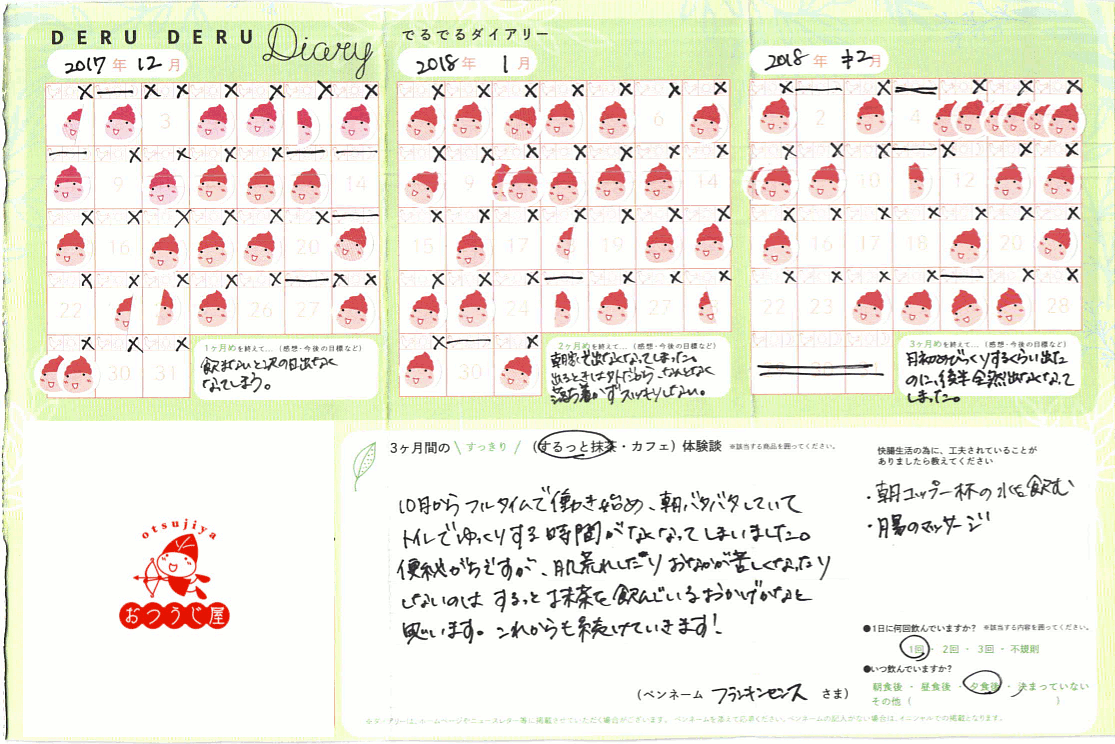 DERU DERU Diary
でるでるダイアリー
2017年 12月
2018年 1月
2018年 2月
3
9
14
16
20
22
26
27
30
31
6
9
14
15
17
19
24
27
30
2
4
10
12
16
17
18
20
22
23
28
1ヶ月めを終えて…（感想・今後の目標など）
飲まないと次の日出なく
なってしまう。
2ヶ月めを終えて…（感想・今後の目標など）
出るときは外だから、なんとなく
落ち着かずスッキリしない。
3ヶ月めを終えて…（感想・今後の目標など）
月初めびっくりするくらい出た
のに、後半全然出なくなって
しまった。
otsujiya
おつうじ屋
3ヶ月間の \ すっきり / （するっと抹茶・カフェ）体験談 ※該当する商品を囲ってください。
10月からフルタイムで働き始め、朝バタバタしていて
トイレでゆっくりする時間がなくなってしまいました。
便秘がちですが、肌荒れしたりおなかが苦しくなったり
しないのはするっと抹茶を飲んでいるおかげかなと
思います。これからも続けていきます!
（ペンネーム フランキンセンス さま）
快腸生活の為に、工夫されていることが
ありましたら教えてください
・朝コップ一杯の水を飲む
・腸のマッサージ
●1日に何回飲んでいますか? ※該当する内容を囲ってください。
1回・2回・3回・不規則
●いつ飲んでいますか?
朝食後・昼食後・夕食後・決まっていない
その他（ ）
※ダイアリーは、ホームページやニュースレター等に掲載させていただく場合がございます。ペンネームを添えて応募ください。ペンネームの記入がない場合は、イニシャルでの掲載となります。